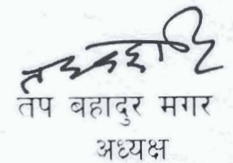 तप बहादुर मगर
अध्यक्ष